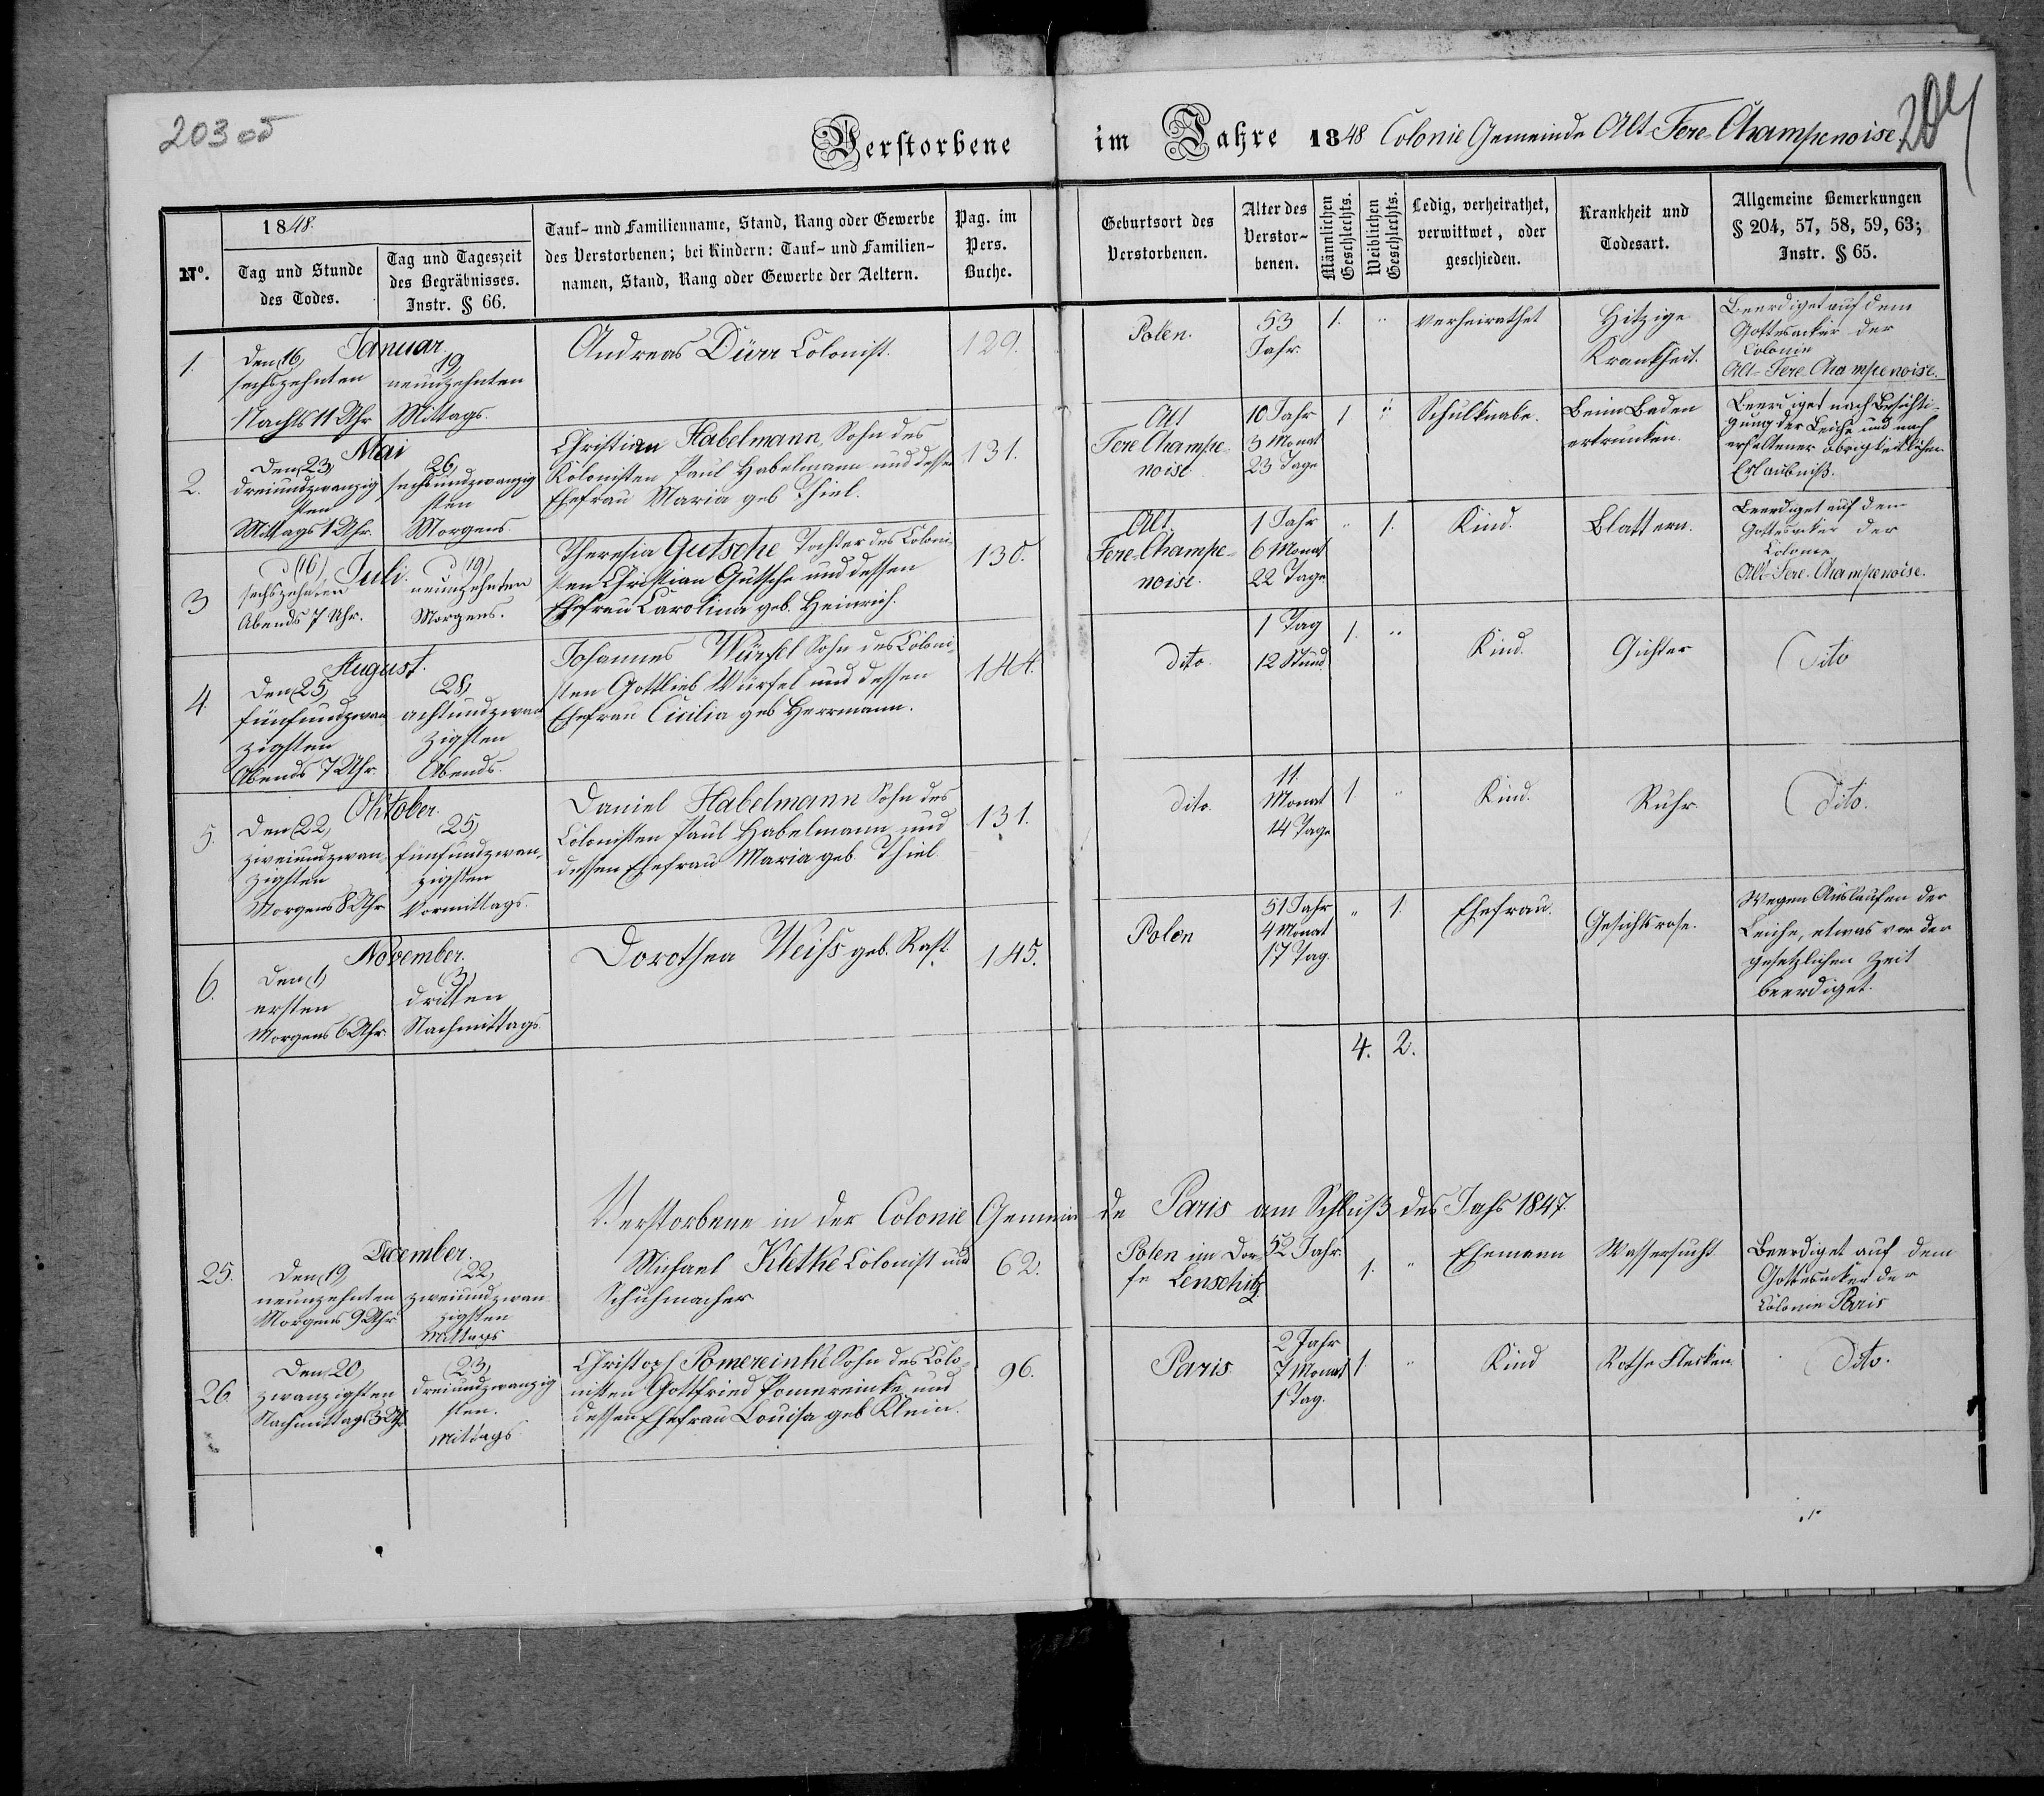 203 об
204
Verstorbene im Jahre 1848 Colonie Gemeinde Alt-Fere-Champenoise
1848.
No.
Tag und Stunde
des Todes.
Tag und Tageszeit
des Begräbnisses.
Instr. § 66.
Tauf- und Familienname, Stand, Rang oder Gewerbe
des Verstorbenen; bei Kindern: Tauf- und Familien-
namen, Stand, Rang oder Gewerbe der Aeltern.
Pag. im
Pers.
Buche.
Geburtsort des
Verstorbenen.
Alter des
Verstor-
benen.
Männlichen
Geschlechts.
Weiblichen
Geschlechts.
Ledig, verheirathet,
verwittwet, oder
geschieden.
Krankheit und
Todesart.
Allgemeine Bemerkungen
§ 204, 57, 58, 59, 63;
Instr. § 65.
1.
Januar.
Den (16)
sechszehnten
Nachts 11 Uhr
19)
neunzehnten
Mittags.
Andreas Dürr Colonist.
129.
Polen.
53
Jahr.
1.
"
verheirathet
Hitzige
Krankheit.
Beerdiget auf dem
Gottesacker der
Colonie
Alt-Fere-Champenoise.
2.
Mai
Den (23)
dreiundzwanzig
sten
Mittags 1 Uhr.
26)
sechsundzwanzig
sten
Morgens
Christian Habelmann, Sohn des
Kolonisten Paul Habelmann und dessen
Ehefrau Maria geb Thiel.
131.
Alt
Fere Champe-
noise.
10 Jahr
3 Monat
23 Tage
1
"
Schulknabe.
Beim Baden
ertrunken.
Beerdiget nach Besichti-
gung der Leiche und nach
erhaltener obrigkeitlicher
Erlaubniß.
3
Juli.
(16)
sechszehnten
Abends 7 Uhr.
(19)
neunzehnten
Morgens.
Theresia Gutsche Tochter des Coloni-
sten Christian Gutsche und dessen
Ehefrau Carolina geb. Heinrich.
130.
Alt
Fere-Champe-
noise.
1 Jahr
6 Monat
22 Tage
"
1.
Kind.
Blattern.
Beerdiget auf dem
Gottesacker der
Colonie
Alt-Fere-Champenoise.
4.
August.
Den (25)
fünfundzwan
zigsten
Abends 7 Uhr.
(28)
achtundzwan
zigsten
Abends.
Johannes Würfel Sohn des Coloni-
sten Gottlieb Würfel und dessen
Ehefrau Cicilia geb Herrmann.
144.
dito.
1 Tag
12 Stund
1.
"
Kind.
Gichter
Dito
5.
Oktober.
Den (22)
zweiundzwan-
zigsten
Morgens 8 Uhr
(25)
fünfundzwan-
zigsten
Vormittags.
Daniel Habelmann Sohn des
Colonisten Paul Habelmann und
dessen Ehefrau Maria geb. Thiel
131.
dito.
11.
Monat
14 Tage
1
"
Kind.
Ruhr.
Dito.
6.
November.
Den (1)
ersten
Morgens 6 Uhr.
(3)
dritten
Nachmittags
Dorothea Weiß geb. Rast.
145.
Polen
51 Jahr
4 Monat
17 Tag.
"
1.
Ehefrau.
Gesichtsrose.
Wegen Auslaufen der
Leiche, etwas vor der
gesetzlichen Zeit
beerdiget.
4.
2.
Verstorbene in der Colonie Gemeinde Paris am Schluß des Jahs 1847.
25.
December.
Den (19)
neunzehnten
Morgens 9 Uhr
(22)
zweiundzwan
zigsten
Mittags
Michael Klethe Colonist und
Schuhmacher
62.
Polen im Dor-
fe Lenschitz
52 Jahr.
1.
"
Ehemann
Wassersucht
Beerdiget auf dem
Gottesacker der
Colonie Paris
26.
Den (20)
zwanzigsten
Nachmittags 3 Uh
(23)
dreiundzwanzig
sten.
Mittags
Christoph Pomereinke Sohn des Colo-
nisten Gottfried Pomereinke und
dessen Ehefrau Louisa geb Klein.
96.
Paris
2 Jahr
7 Monat
1 Tag.
1.
"
Kind
Rothe Flecken.
Dito.